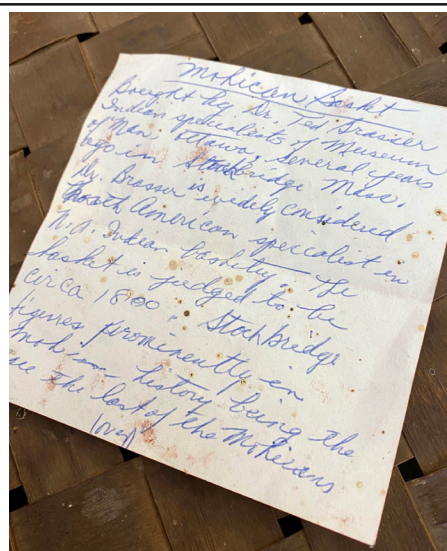 Mohican Basket
Bought by Dr. Ted Brasser
Indian specialists of Museum
of Man, Ottawa, several years
ago in Stockbridge Mass.
Dr. Brasser is widely considered
North American specialist in
N.A. Indian basketry — The
basket is judged to be
circa 1800. Stockbridge
figures prominently in
Mohican history being the
the last of the Mohicans
(over)